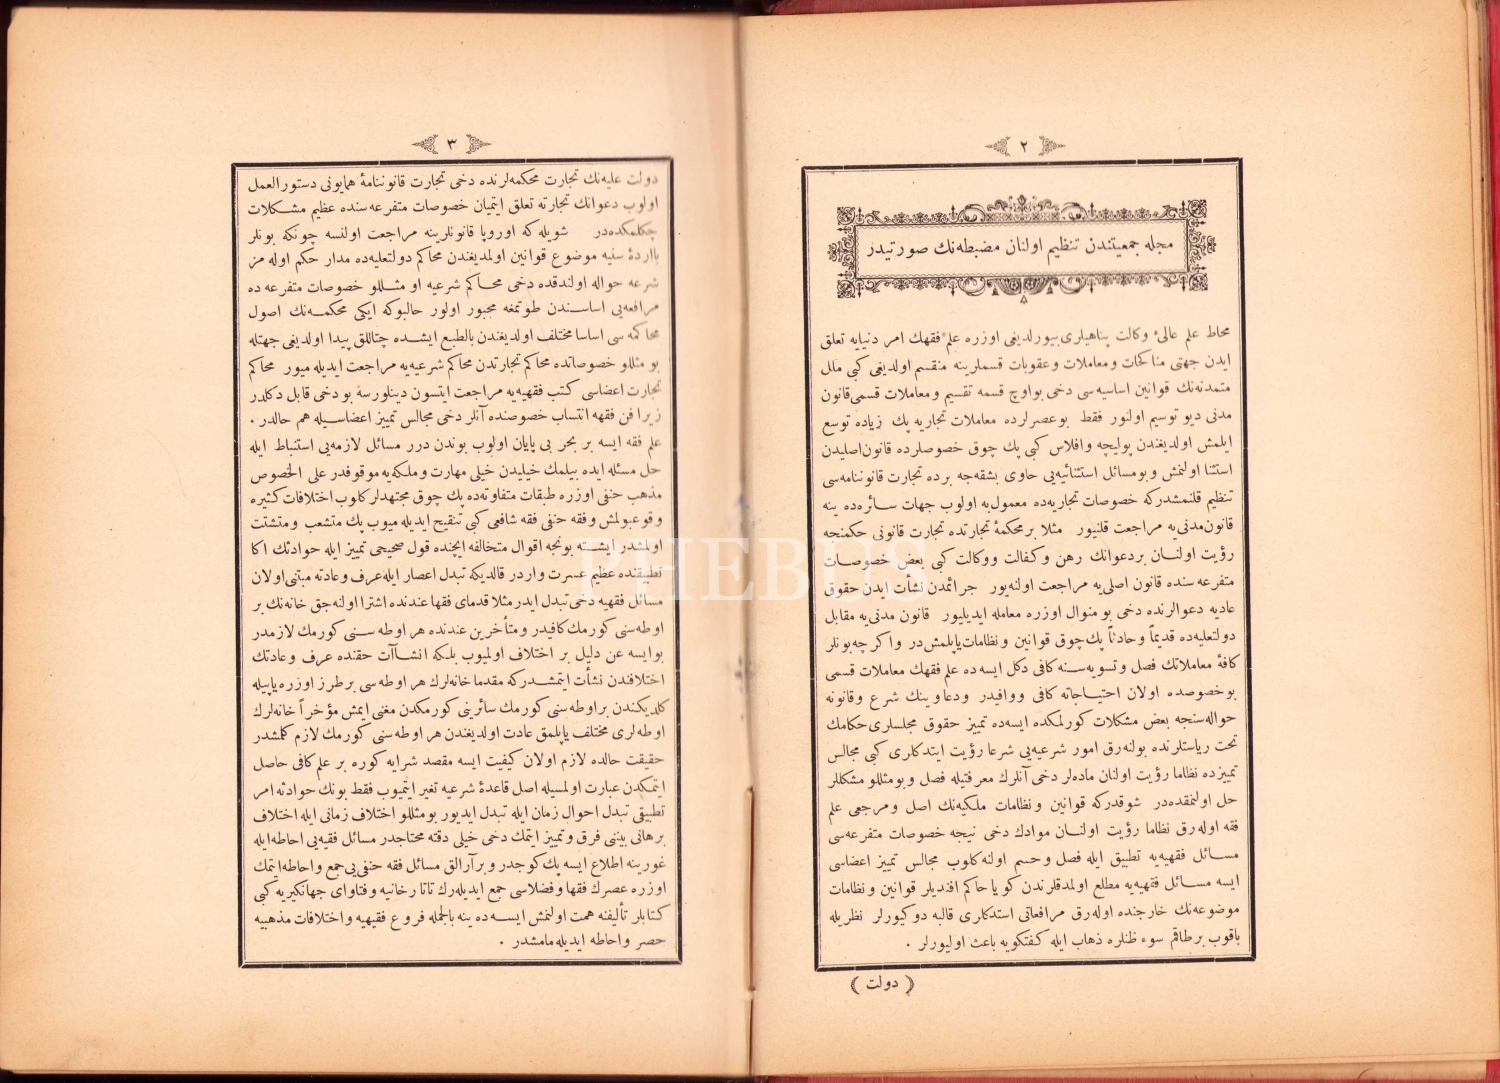 ٢
مجله جمعیتندن تنظیم اولنان مضبطه‌نك صورتیدر
محاط علم عالیٔ وكالت پناهیلری بیورلدیغی اوزره علم فقهك امر دنیایه تعلق
ایدن جهتی مناكحات ومعاملات وعقوبات قسملرینه منقسم اولدیغی كبی ملل
متمدنه‌نك قوانین اساسیه‌سی دخی بواوچ قسمه تقسیم ومعاملات قسمی قانون
مدنی دیو توسیم اولنور فقط بوعصرلرده معاملات تجاریه پك زیاده توسع
ایلمش اولدیغندن پولیچه وافلاس كبی پك چوق خصوصلرده قانون‌اصلیدن
استثنا اولنمش وبومسائل استثنائیه‌یی حاوی بشقه‌جه برده تجارت قانوننامه‌سی
تنظیم قلنمشدركه خصوصات تجاریه‌ده معمول‌به اولوب جهات سائره‌ده ینه
قانون‌مدنی‌یه مراجعت قلنیور مثلا برمحكمهٔ تجارتده تجارت قانونی حكمنجه
رؤیت اولنان بردعوانك رهن وكفالت ووكالت كبی بعض خصوصات
متفرعه‌سنده قانون اصلی‌یه مراجعت اولنه‌یور جرائمدن نشأت ایدن حقوق
عادیه دعوالرنده دخی بو منوال اوزره معامله ایدیلیور قانون مدنی‌یه مقابل
دولتعلیه‌ده قدیماً وحادثاً پك‌چوق قوانین ونظامات‌یاپلمش‌در واكرچه‌بونلر
كافهٔ معاملاتك فصل وتسویه‌سنه كافی دكل ایسه‌ده علم فقهك معاملات قسمی
بوخصوصده اولان احتیاجاته كافی ووافیدر ودعاوینك شرع وقانونه
حواله‌سنجه بعض مشكلات كورلمكده ایسه‌ده تمییز حقوق مجلسلری‌حكامك
تحت ریاستلرنده بولنه‌رق امور شرعیه‌یی شرعا رؤیت ایتدكلری كبی مجالس
تمییزده نظاما رؤیت اولنان ماده‌لر دخی آنلرك معرفتیله فصل وبومثللو مشكللر
حل اولنمقده‌در شوقدركه قوانین ونظامات ملكیه‌نك اصل ومرجعی علم
فقه اوله‌رق نظاما رؤیت اولنان موادك دخی نیجه خصوصات متفرعه‌سی
مسائل فقهیه‌یه تطبیق ایله فصل وحسم اولنه‌كلوب مجالس تمییز اعضاسی
ایسه مسائل فقهیه‌یه مطلع اولمدقلرندن كویا حاكم افندیلر قوانین ونظامات
موضوعه‌نك خارجنده اوله‌رق مرافعاتی استدكلری قالبه دوكیورلر نظریله
باقوب برطاقم سوء ظنلره ذهاب ایله كفتكویه باعث اولیورلر .
( دولت )
٣
دولت علیه‌نك تجارت محكمه‌لرنده دخی تجارت قانوننامهٔ همایونی دستورالعمل
اولوب دعوانك تجارته تعلق ایتمیان خصوصات متفرعه‌سنده عظیم مشكلات
چكلمكده‌در شویله كه اوروپا قانونلرینه مراجعت اولنسه چونكه بونلر
باارادهٔ سنیه موضوع قوانین اولمدیغندن محاكم دولتعلیه‌ده مدار حكم اوله‌مز
شرعه حواله اولندقده دخی محاكم شرعیه او مثللو خصوصات متفرعه‌ده
مرافعه‌یی اساسندن طوتمغه مجبور اولور حالبوكه ایكی محكمه‌نك اصول
محاكمه‌سی اساسا مختلف اولدیغندن بالطبع ایشده چتاللق پیدا اولدیغی جهتله
بو مثللو خصوصاتده محاكم تجارتدن محاكم شرعیه‌یه مراجعت ایدیله‌میور محاكم
تجارت اعضاسی كتب فقهیه‌یه مراجعت ایتسون دینلورسه بو دخی قابل دكلدر
زیرا فن فقهه انتساب خصوصنده آنلر دخی مجالس تمییز اعضاسیله هم حالدر .
علم فقه ایسه بر بحر بی پایان اولوب بوندن درر مسائل لازمه‌یی استنباط ایله
حل مسئله ایده بیلمك خیلیدن خیلی مهارت وملكه‌یه موقوفدر علی الخصوص
مذهب حنفی اوزره طبقات متفاوته‌ده پك چوق مجتهدلركلوب اختلافات كثیره
وقوعبولمش وفقه حنفی فقه شافعی كبی تنقیح ایدیله‌میوب پك متشعب ومتشتت
اولمشدر ایشته بونجه اقوال متخالفه ایچنده قول صحیحی تمییز ایله حوادثك اكا
تطبیقنده عظیم عسرت واردر قالدیكه تبدل اعصار ایله عرف وعادته مبتنی اولان
مسائل فقهیه دخی تبدل ایدر مثلا قدمای فقها عندنده اشترا اولنه‌جق خانه‌نك بر
اوطه‌سنی كورمك كافیدر ومتأخرین عندنده هر اوطه‌سنی كورمك لازمدر
بوایسه عن دلیل بر اختلاف اولمیوب بلكه انشاآت حقنده عرف وعادتك
اختلافندن نشأت ایتمشدركه مقدما خانه‌لرك هر اوطه‌سی برطرز اوزره یاپیله
كلدیكندن براوطه‌سنی كورمك سائرینی كورمكدن مغنی ایمش مؤخراً خانه‌لرك
اوطه‌لری مختلف یاپلمق عادت اولدیغندن هر اوطه‌سنی كورمك لازم كلمشدر
حقیقت حالده لازم اولان كیفیت ایسه مقصد شرایه كوره بر علم كافی حاصل
ایتمكدن عبارت اولمسیله اصل قاعدهٔ شرعیه تغیر ایتمیوب فقط بونك حوادثه امر
تطبیقی تبدل احوال زمان ایله تبدل ایدیور بومثللو اختلاف زمانی ایله اختلاف
برهانی بیننی فرق وتمییز ایتمك دخی خیلی دقته محتاجدر مسائل فقهیه‌یی احاطه‌ایله
غورینه اطلاع ایسه پك كوجدر وبرآرالق مسائل فقه حنفی‌یی جمع واحاطه ایتمك
اوزره عصرك فقها وفضلاسی جمع ایدیله‌رك تاتارخانیه وفتاوای جهانكیریه كبی
كتابلر تألیفنه همت اولنمش ایسه‌ده ینه بالجمله فروع فقهیه واختلافات مذهبیه
حصر واحاطه ایدیله‌مامشدر .
PHEBUS